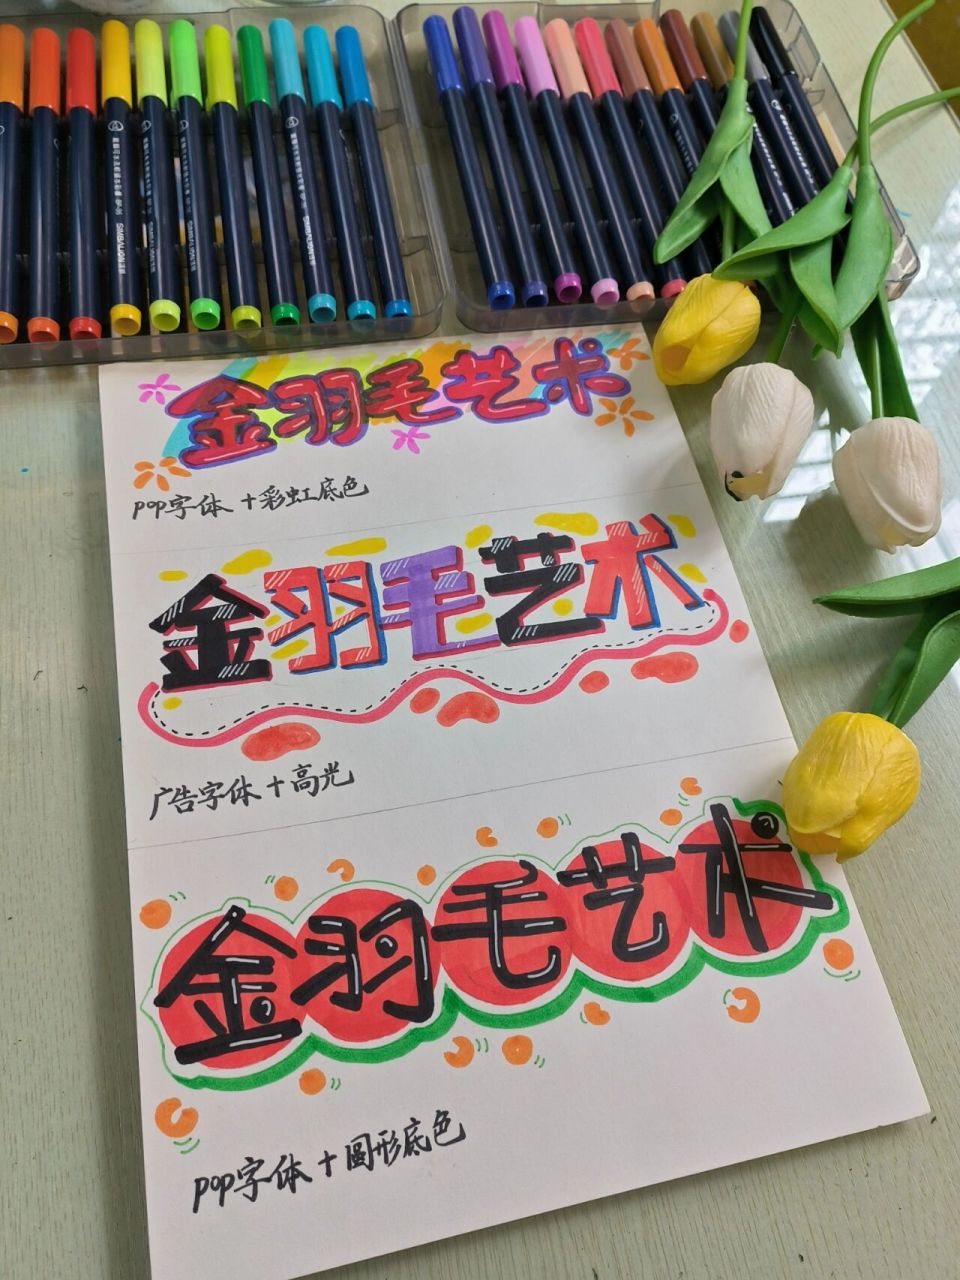 SIMBALION
SIMBALION
SIMBALION
金羽毛艺术
pop字体+彩虹底色
金羽毛艺术
广告字体+高光
金羽毛艺术
pop字体+圆形底色